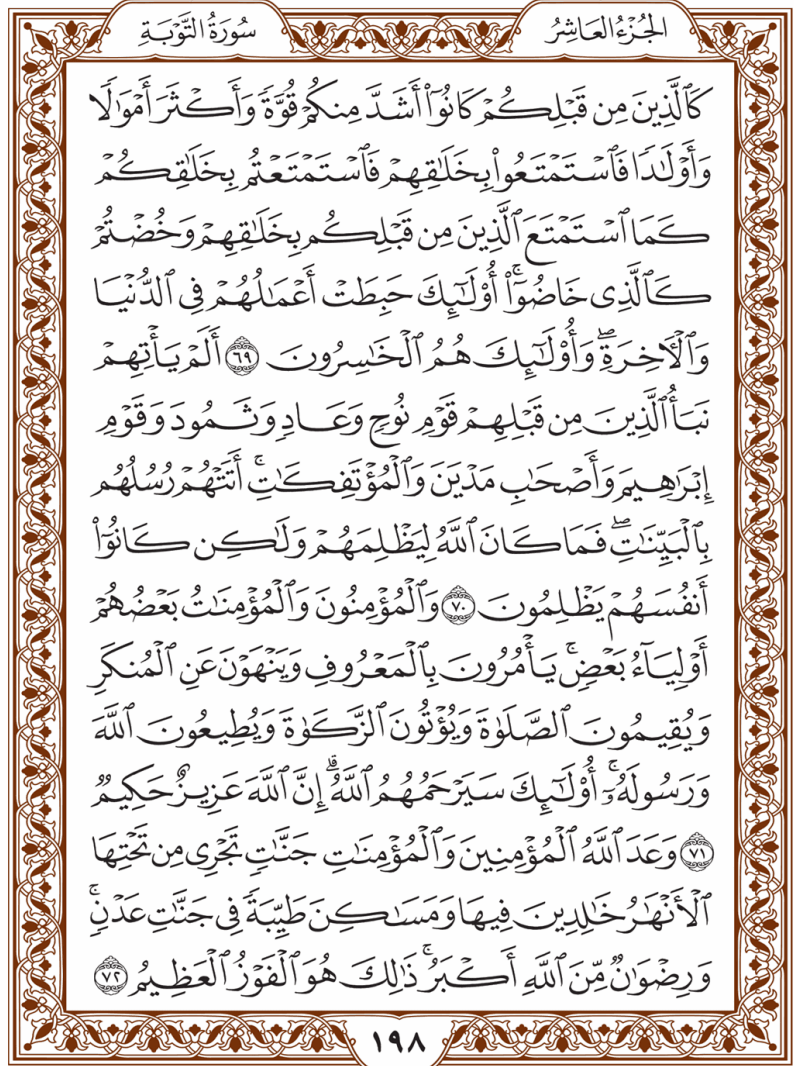 الجُزْءُ العَاشِرُ
سُورَةُ التَّوْبَةِ
كَٱلَّذِينَ مِن قَبْلِكُمْ كَانُوٓا۟ أَشَدَّ مِنكُمْ قُوَّةً وَأَكْثَرَ أَمْوَٰلًا
وَأَوْلَٰدًا فَٱسْتَمْتَعُوا۟ بِخَلَٰقِهِمْ فَٱسْتَمْتَعْتُم بِخَلَٰقِكُمْ
كَمَا ٱسْتَمْتَعَ ٱلَّذِينَ مِن قَبْلِكُم بِخَلَٰقِهِمْ وَخُضْتُمْ
كَٱلَّذِى خَاضُوٓا۟ۚ أُو۟لَٰٓئِكَ حَبِطَتْ أَعْمَٰلُهُمْ فِى ٱلدُّنْيَا
وَٱلْأَخِرَةِۖ وَأُو۟لَٰٓئِكَ هُمُ ٱلْخَٰسِرُونَ ٦٩ أَلَمْ يَأْتِهِمْ
نَبَأُ ٱلَّذِينَ مِن قَبْلِهِمْ قَوْمِ نُوحٍ وَعَادٍ وَثَمُودَ وَقَوْمِ
إِبْرَٰهِيمَ وَأَصْحَٰبِ مَدْيَنَ وَٱلْمُؤْتَفِكَٰتِۚ أَتَتْهُمْ رُسُلُهُم
بِٱلْبَيِّنَٰتِۖ فَمَا كَانَ ٱللَّهُ لِيَظْلِمَهُمْ وَلَٰكِن كَانُوٓا۟
أَنفُسَهُمْ يَظْلِمُونَ ٧٠ وَٱلْمُؤْمِنُونَ وَٱلْمُؤْمِنَٰتُ بَعْضُهُمْ
أَوْلِيَآءُ بَعْضٍۚ يَأْمُرُونَ بِٱلْمَعْرُوفِ وَيَنْهَوْنَ عَنِ ٱلْمُنكَرِ
وَيُقِيمُونَ ٱلصَّلَوٰةَ وَيُؤْتُونَ ٱلزَّكَوٰةَ وَيُطِيعُونَ ٱللَّهَ
وَرَسُولَهُۥٓۚ أُو۟لَٰٓئِكَ سَيَرْحَمُهُمُ ٱللَّهُۗ إِنَّ ٱللَّهَ عَزِيزٌ حَكِيمٌ
٧١ وَعَدَ ٱللَّهُ ٱلْمُؤْمِنِينَ وَٱلْمُؤْمِنَٰتِ جَنَّٰتٍ تَجْرِى مِن تَحْتِهَا
ٱلْأَنْهَٰرُ خَٰلِدِينَ فِيهَا وَمَسَٰكِنَ طَيِّبَةً فِى جَنَّٰتِ عَدْنٍۚ
وَرِضْوَٰنٌ مِّنَ ٱللَّهِ أَكْبَرُۚ ذَٰلِكَ هُوَ ٱلْفَوْزُ ٱلْعَظِيمُ ٧٢
١٩٨